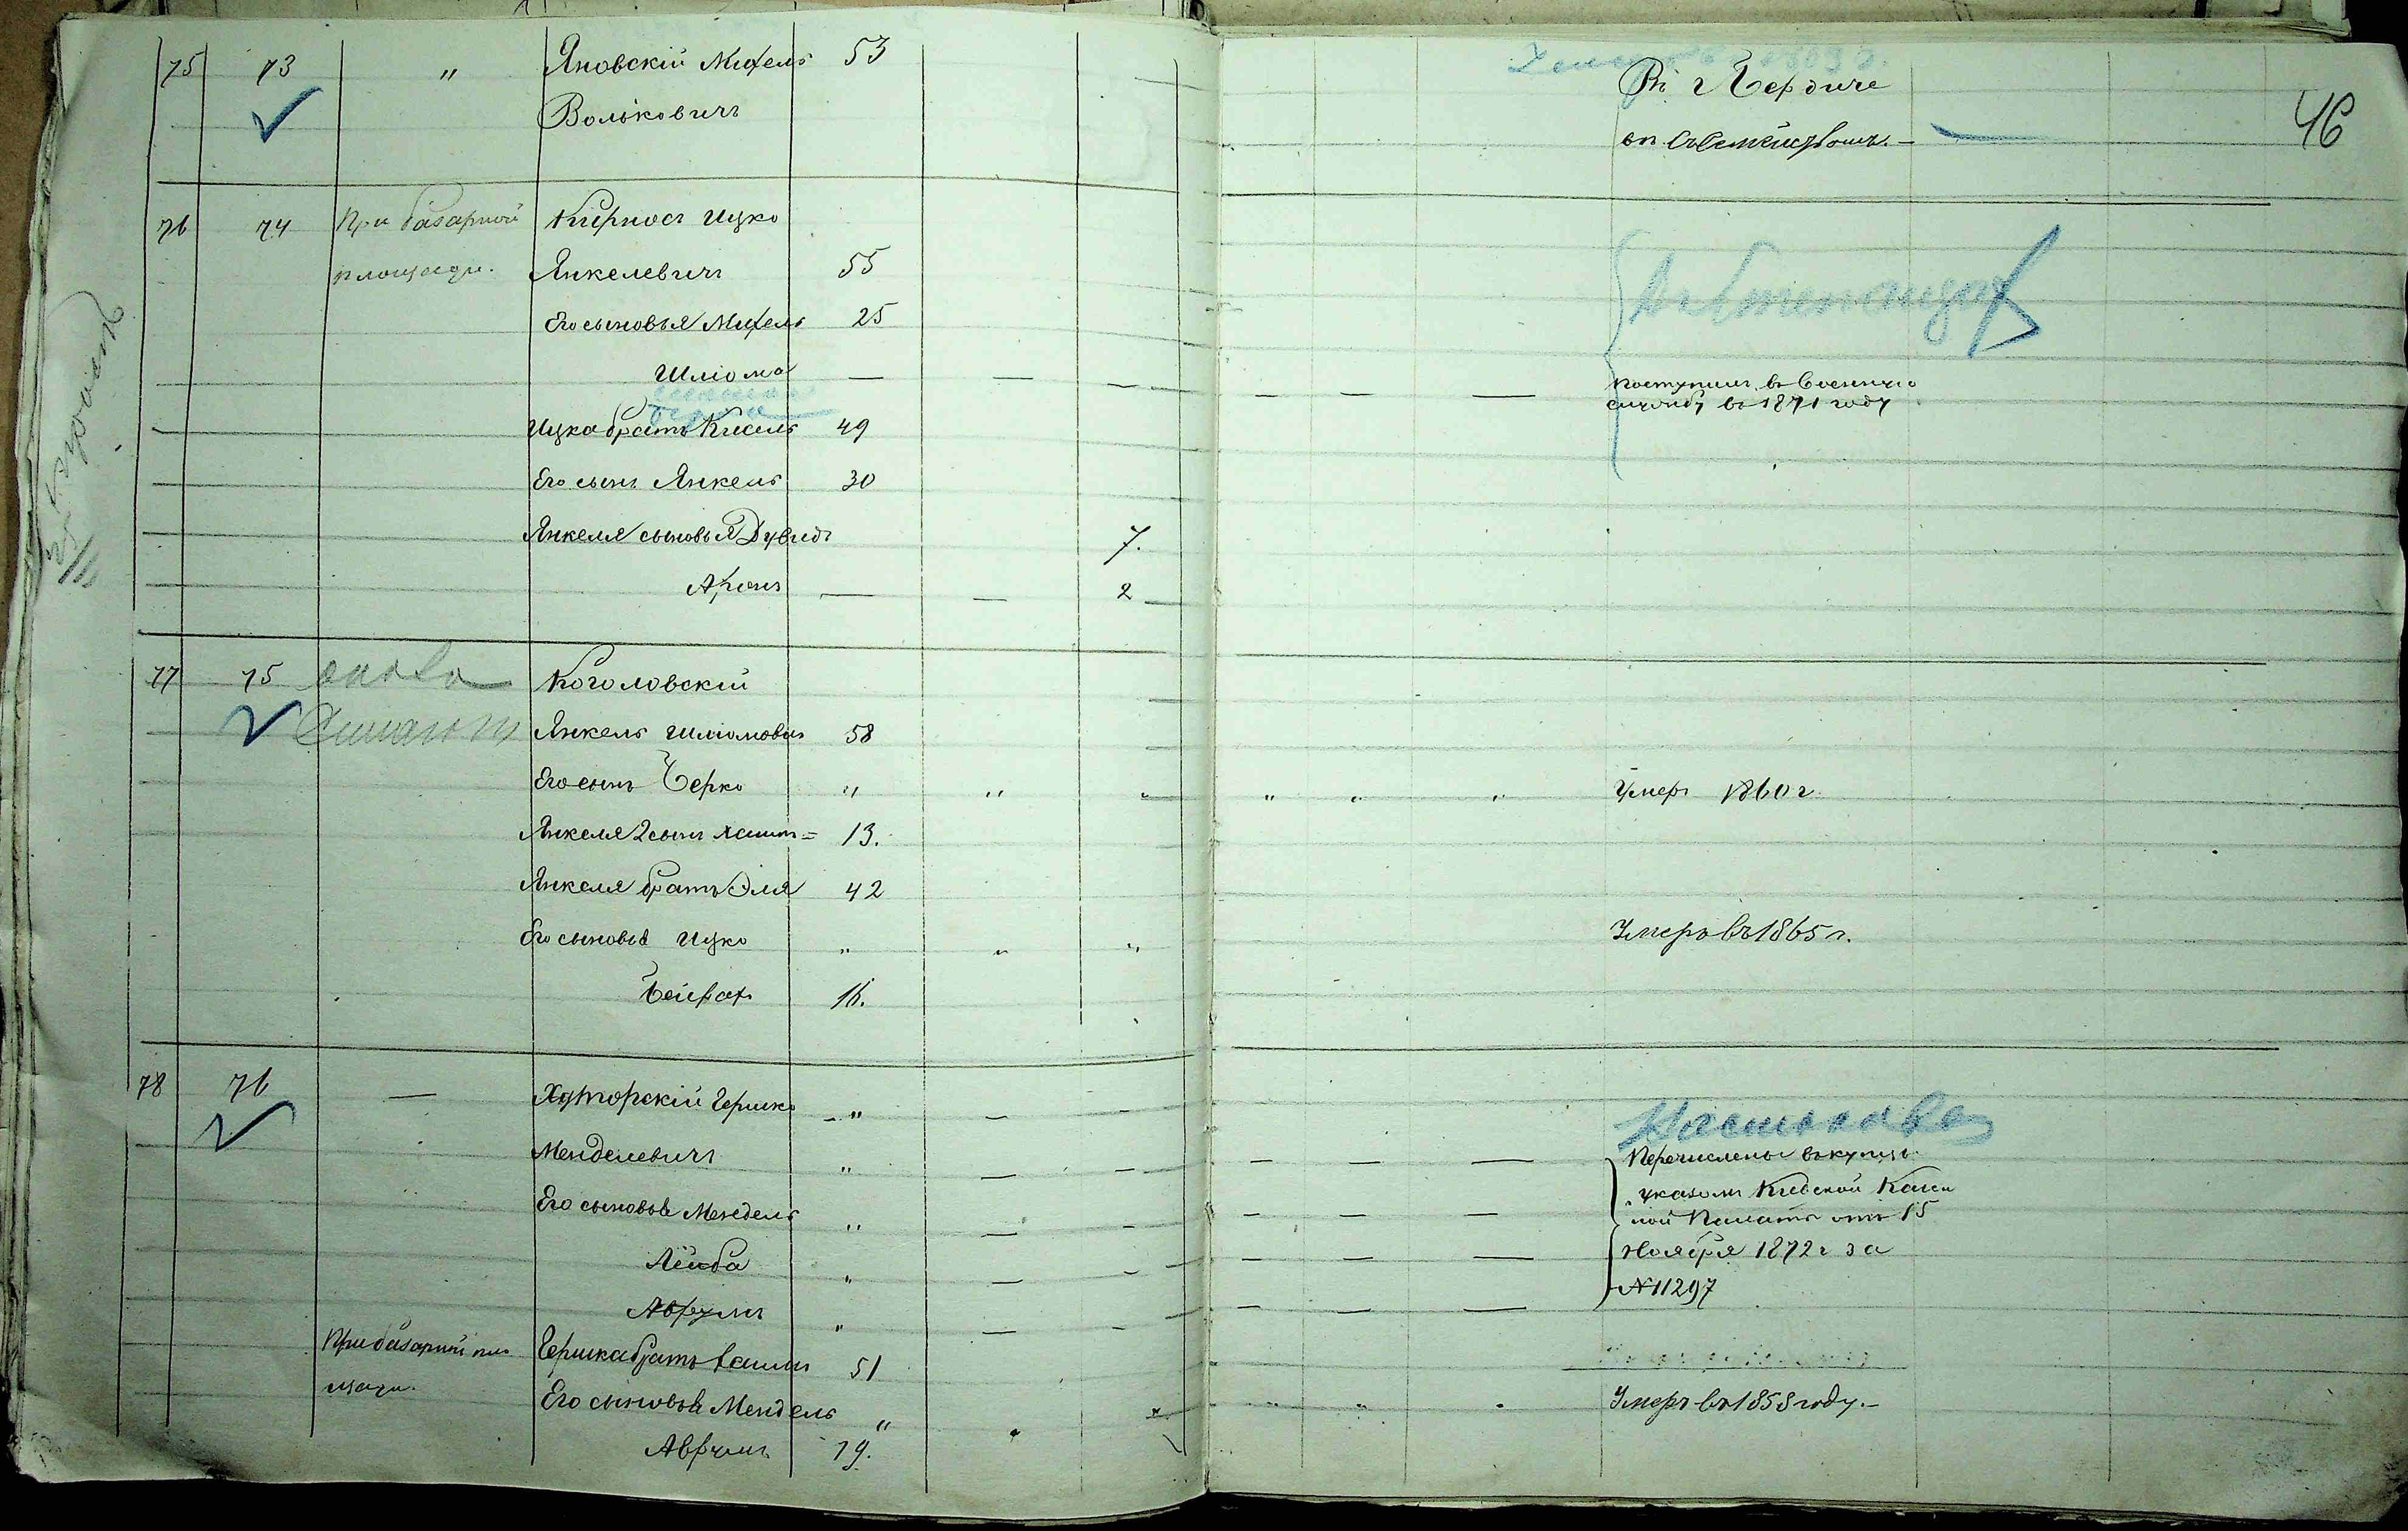 75 73 " Яновскій Михель 53
Вольковичъ
46
76 74 При базарной Кирносъ Ицко
площади. Янкелевичъ 55
Его сыновья Михель 25
Шліома — — — — — — поступилъ въ военную
службу въ 1871 году
Ицка братъ Кисель 49
Его сынъ Янкель 30
Янкеля сыновья Дувидъ 7.
Аронъ — — 2
77 75 около Коголовскій
Янкель Шліомовъ 58
Его сынъ Берко " " " " " " Умеръ 1860 г.
Янкеля 2 сынъ Хаим= 13.
Янкеля братъ Эля 42
Его сыновья Ицко " " " Умеръ въ 1865 г.
16.
78 76 — Хуторскій Гершко " — —
Менделевичъ " — — — — — Перечислены въ купцы
Его сыновья Мендель " — — — — — указомъ Кіевской Казен
ной Палаты отъ 15
Лейба " — — — — — Ноября 1872 г за
Аврумъ " — — — — — №11297
При базарной пло Гершка братъ 51
щади.
Его сыновья Мендель " " " " " " Умеръ въ 1858 году.–
Аврумъ 19.